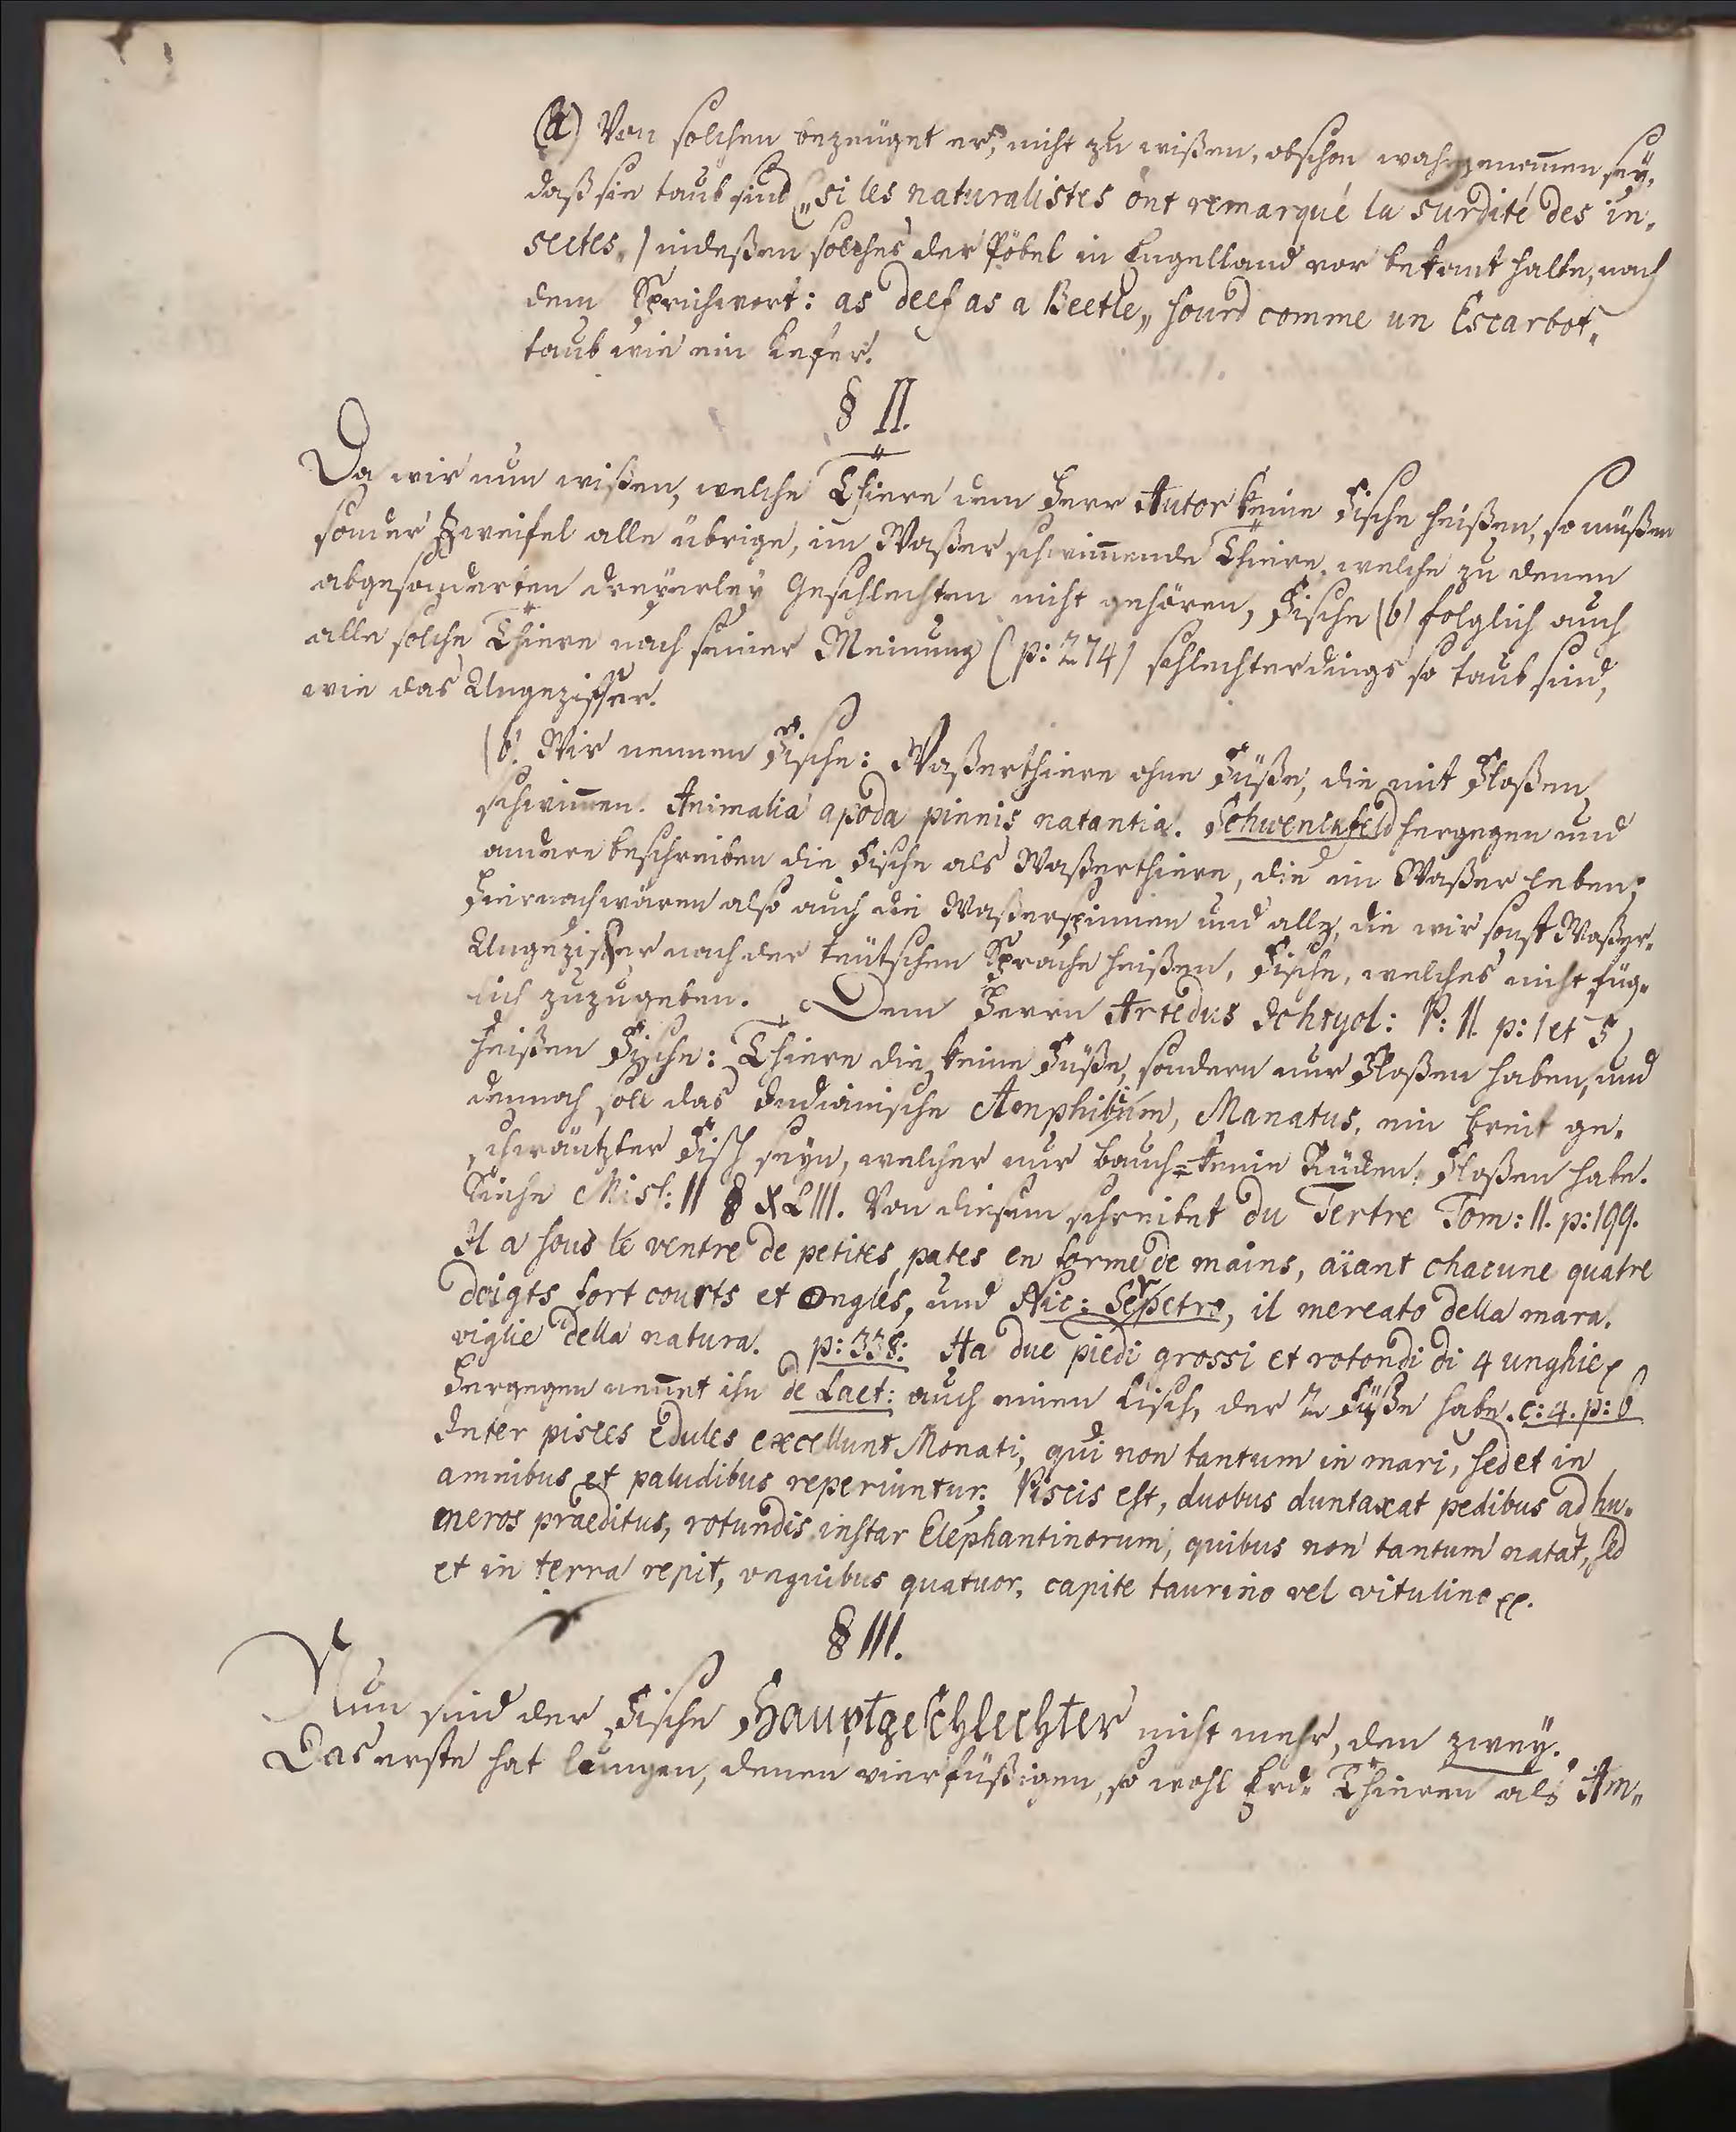 (a) Von solchen bezeuget er, nicht zu wißen, obschon wahrgenom̄en sey,
daß sie taub sind („si les naturalistes ont remarqué la surdité des in„
sectes„) indeßen solches der Pöbel in Engelland vor bekant halte, nach
dem Sprichwort: as deef as a Beetle„ sourd comme un Escarbot„
taub wie ein Kefer.
§ II.
Da wir nun wißen, welche Thiere dem Herr Autor keine Fische heißen, so müßen
sonder Zweifel alle übrige, im Waßer schwim̄ende Thiere, welche zu denen
abgesonderten dreyerley Geschlechten nicht gehören, Fische (b) folglich auch
alle solche Thiere nach seiner Meinung (p: 274) schlechterdings so taub sind,
wie das Ungeziffer.
(b) Wir nennen Fische: Waßerthiere ohne Füße, die mit Floßen
schwim̄en. Animalia apoda pinnis natantia. Schwenkfeld hergegen und
andere beschreiben die Fische als Waßerthiere, die im Waßer leben;
Hiernach wären also auch die Waßerspinnen und alle, die wir sonst Waßer„
Ungeziffer nach der teutschen Sprache heißen, Fische, welches nicht füg„
lich zuzugeben. Dem Herrn Artedus Ichtyol: P: II. p: 1 et 5)
heißen Fische: Thiere die keine Füße, sondern nur Floßen haben, und
dennoch soll das Indianische Amphibium, Manatus, ein breit ge„
schwäntzter Fisch seyn, welcher nur Bauch= keine Rücken: Floßen habe.
Siehe Miss: II § XLIII. Von diesem schreibet du Tertre Tom: II. p: 199.
Il a sous le ventre de petites pates en forme de mains, aïant chacune quatre
doigts fort courts et onglés, und Nic: Serpetro, il mercato della mara„
viglie della natura. p: 338: Ha due piedi grossi et rotondi di 4 unghie,
Hergegen nen̄et ihn de Laet: auch einen Fisch, der 2 Füße habe. c: 4. p: 6
Inter pisces edules excellunt Monati, qui non tantum in mari, sed et in
amnibus et paludibus reperiuntur; Piscis est, duobus duntaxat pedibus ad hu„
meros præditus, rotundis instar Elephantinorum, quibus non tantum natat, sed
et in terra repit, unguibus quatuor, capite taurino vel vitulino
§ III.
Nun sind der Fische Hauptgeschlechter nicht mehr, den zwey.
Das erste hat Lungen, denen vierfüßigen, so wohl Erd„ Thieren als Am„